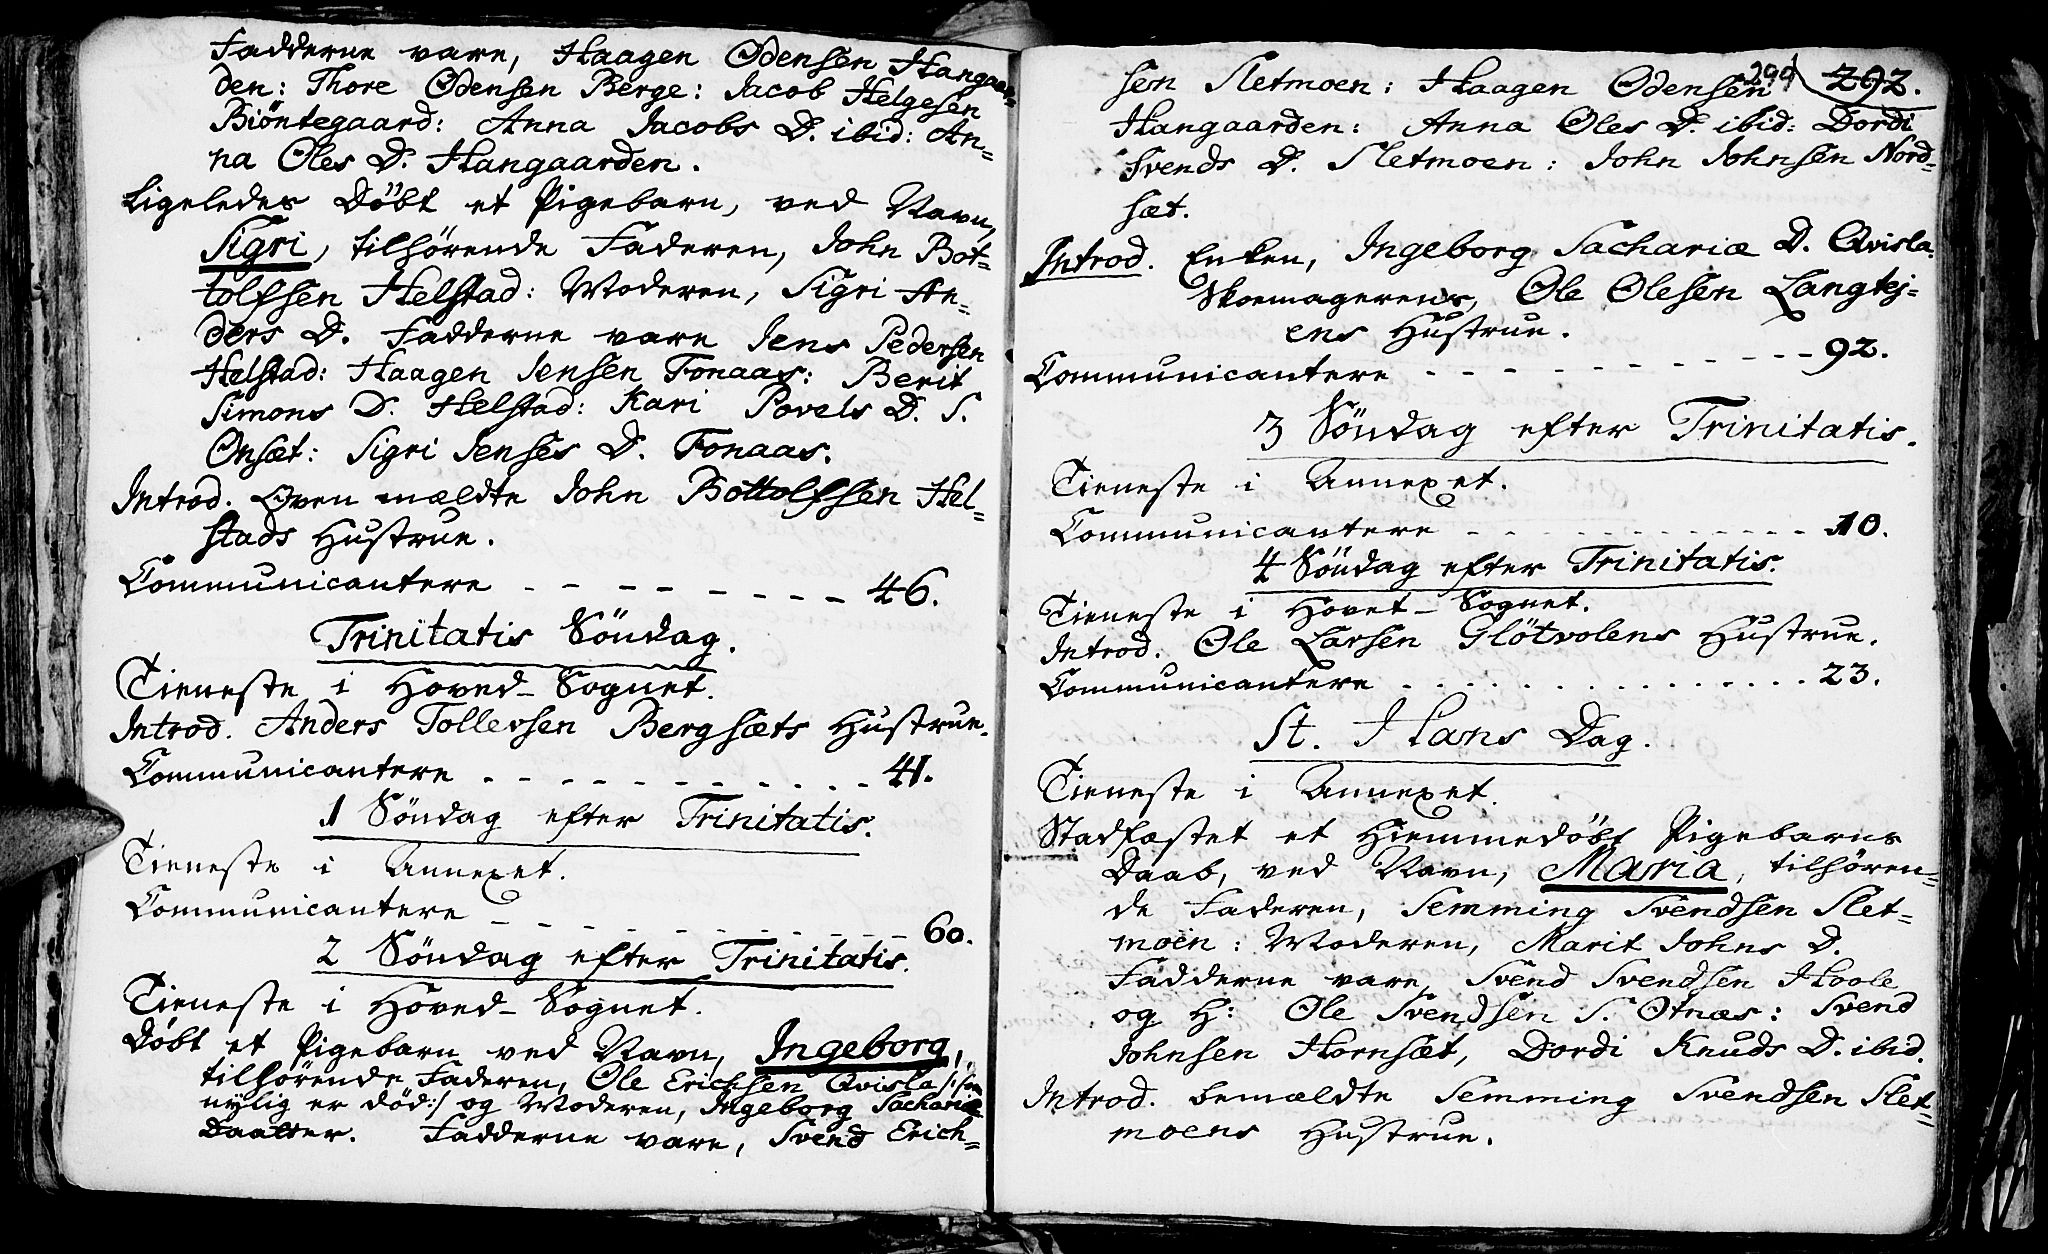 Fadderne vare, Haagen Odensen Hangaar=
den: Thore Odensen Berge: Jacob Helgesen
Biöntegaard: Anna Jacobs D. ibid: An=
na Oles D. Hangaarden.
Ligeledes Döbt et Pigebarn, ved Navn,
Sigri, tilhörende Faderen, John Bot=
tolfsen Helstad: Moderen, Sigri An=
ders D. Fadderne vare Jens Pedersen
Helstad: Haagen Jensen Fonaas: Berit
Simons D. Helstad: Kari Povels D. S.
Onsæt: Sigri Jenses D. Fonaas.
Introd. Oven mældte John Bottolfsen Hel=
stads Hustrue.
Communicantere - - - - - - - - 46.
Trinitatis Söndag.
Tieneste i Hoved-Sognet.
Introd. Anders Tollevsen Bergsæts Hustrue.
Communicantere - - - - - - - - - - 41.
1 Söndag efter Trinitatis.
Tieneste i Annexet.
Communicantere - - - - - - - - - - 60.
2 Söndag efter Trinitatis.
Tieneste i Hoved-Sognet.
Döbt et Pigebarn ved Navn, Ingeborg,
tilhörende Faderen, Ole Ericksen Qvisla /: som
nylig er död :/ og Moderen, Ingeborg Sachariæ
Daatter. Fadderne vare, Svend Erich=
299 292.
sen Sletmoen: Haagen Odensen
Hangaarden: Anna Oles D. ibid: Dordi
Svends D. Sletmoen: John Johnsen Nord=
sæt.
Introd. Enken, Ingeborg Sachariæ D. Qvisla.
Skoemagerens, Ole Olesen Langtej=
ens Hustrue.
Communicantere - - - - - - - - - - 92.
3 Söndag efter Trinitatis.
Tieneste i Annexet.
Communicantere - - - - - - - - - - 10.
4 Söndag efter Trinitatis.
Tieneste i Hovet-Sognet.
Introd. Ole Larsen Glötvolens Hustrue.
Communicantere . . . . . . . . . . . . 23.
St. Hans Dag.
Tieneste i Annexet.
Stadfæstet et Hiemmedöbt Pigebarns
Daab, ved Navn, Maria, tilhören=
de Faderen, Semming Svendsen Slet=
moen: Moderen, Marit Johns D.
Fadderne vare Svend Svendsen Hoole
og H: Ole Svendsen S. Otnæs: Svend
Johnsen Hornsæt, Dordi Knuds D. ibid.
Introd. bemældte Semming Svendsen Slet=
moens Hustrue.